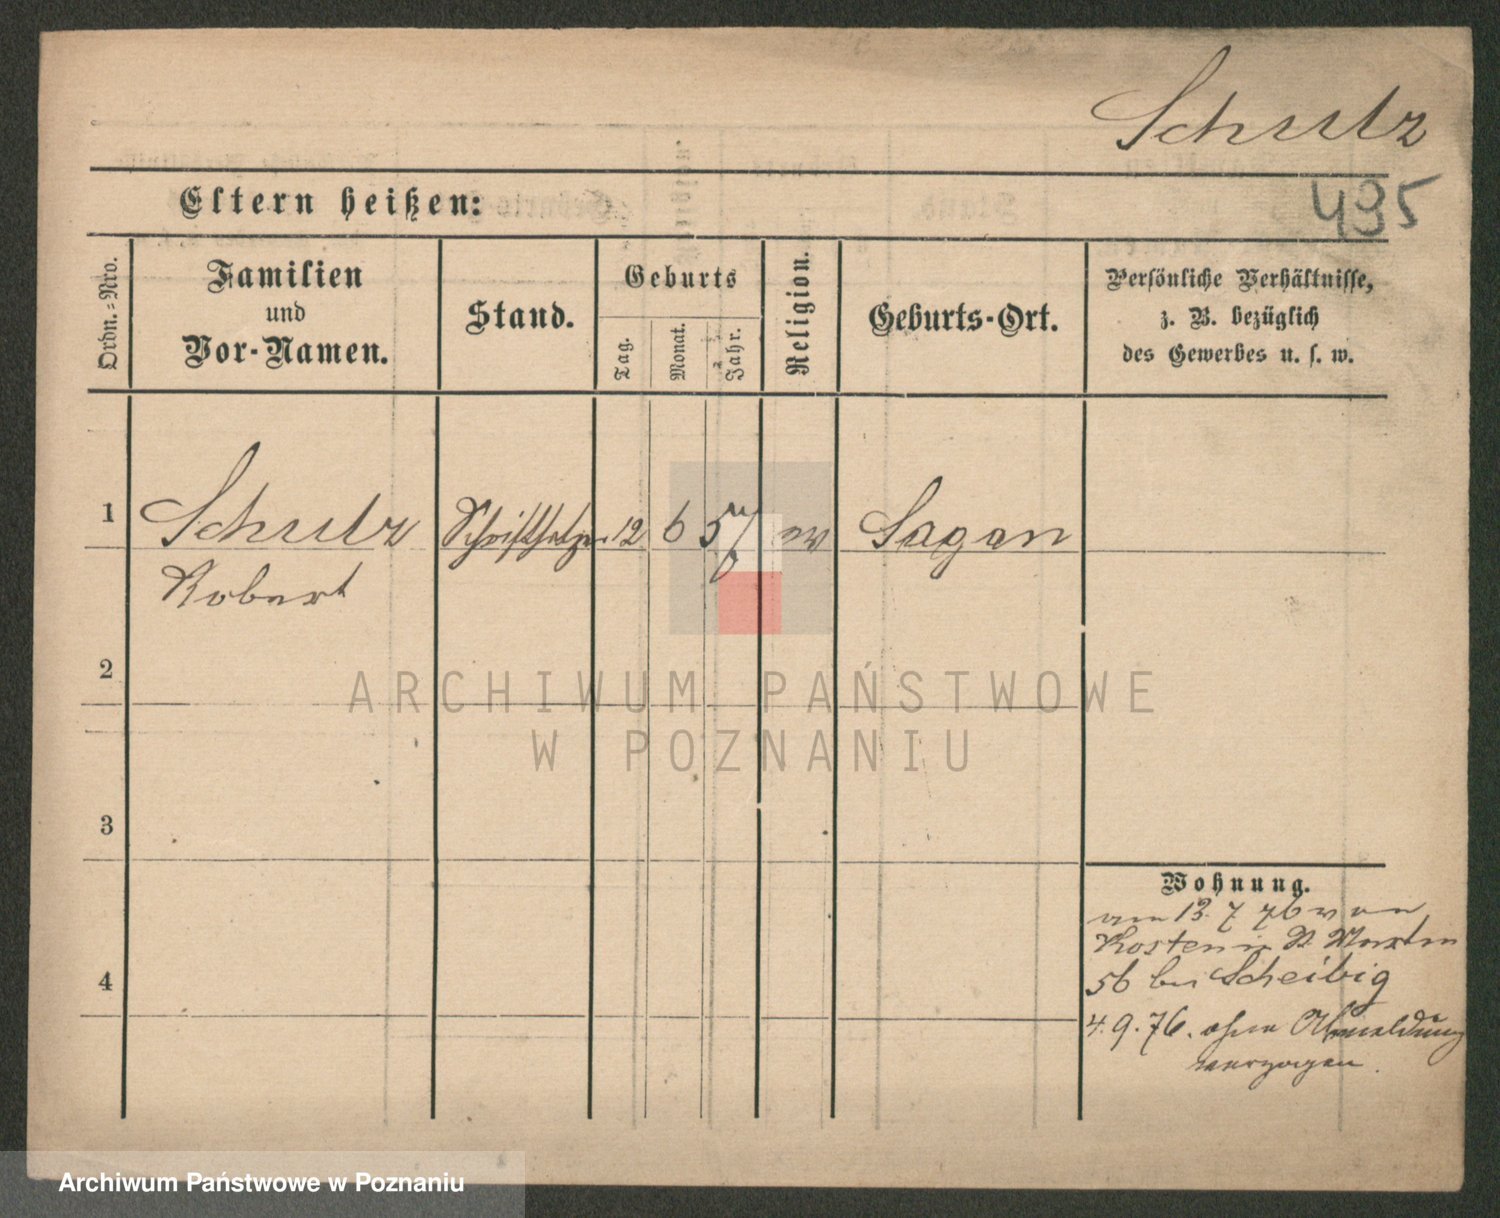 Schulz
495
Eltern heißen:
Ordn.-Nro.
Familien
und
Vor-Namen.
Stand.
Geburts
Tag.
Monat.
Jahr.
Religion.
Geburts-Ort.
Persönliche Verhältnisse,
z. B. bezüglich
des Gewerbes u. s. w.
1 Schulz Schriftsetzer 12 6 57 ev Sagan
Robert
2
3
4
Wohnung.
am 13. 7 76 von
Kosten in St Martin
56 bei Scheibig
4. 9. 76. ohne Abmeldung
verzogen.
ARCHIWUM PAŃSTWOWE
W POZNANIU
Archiwum Państwowe w Poznaniu